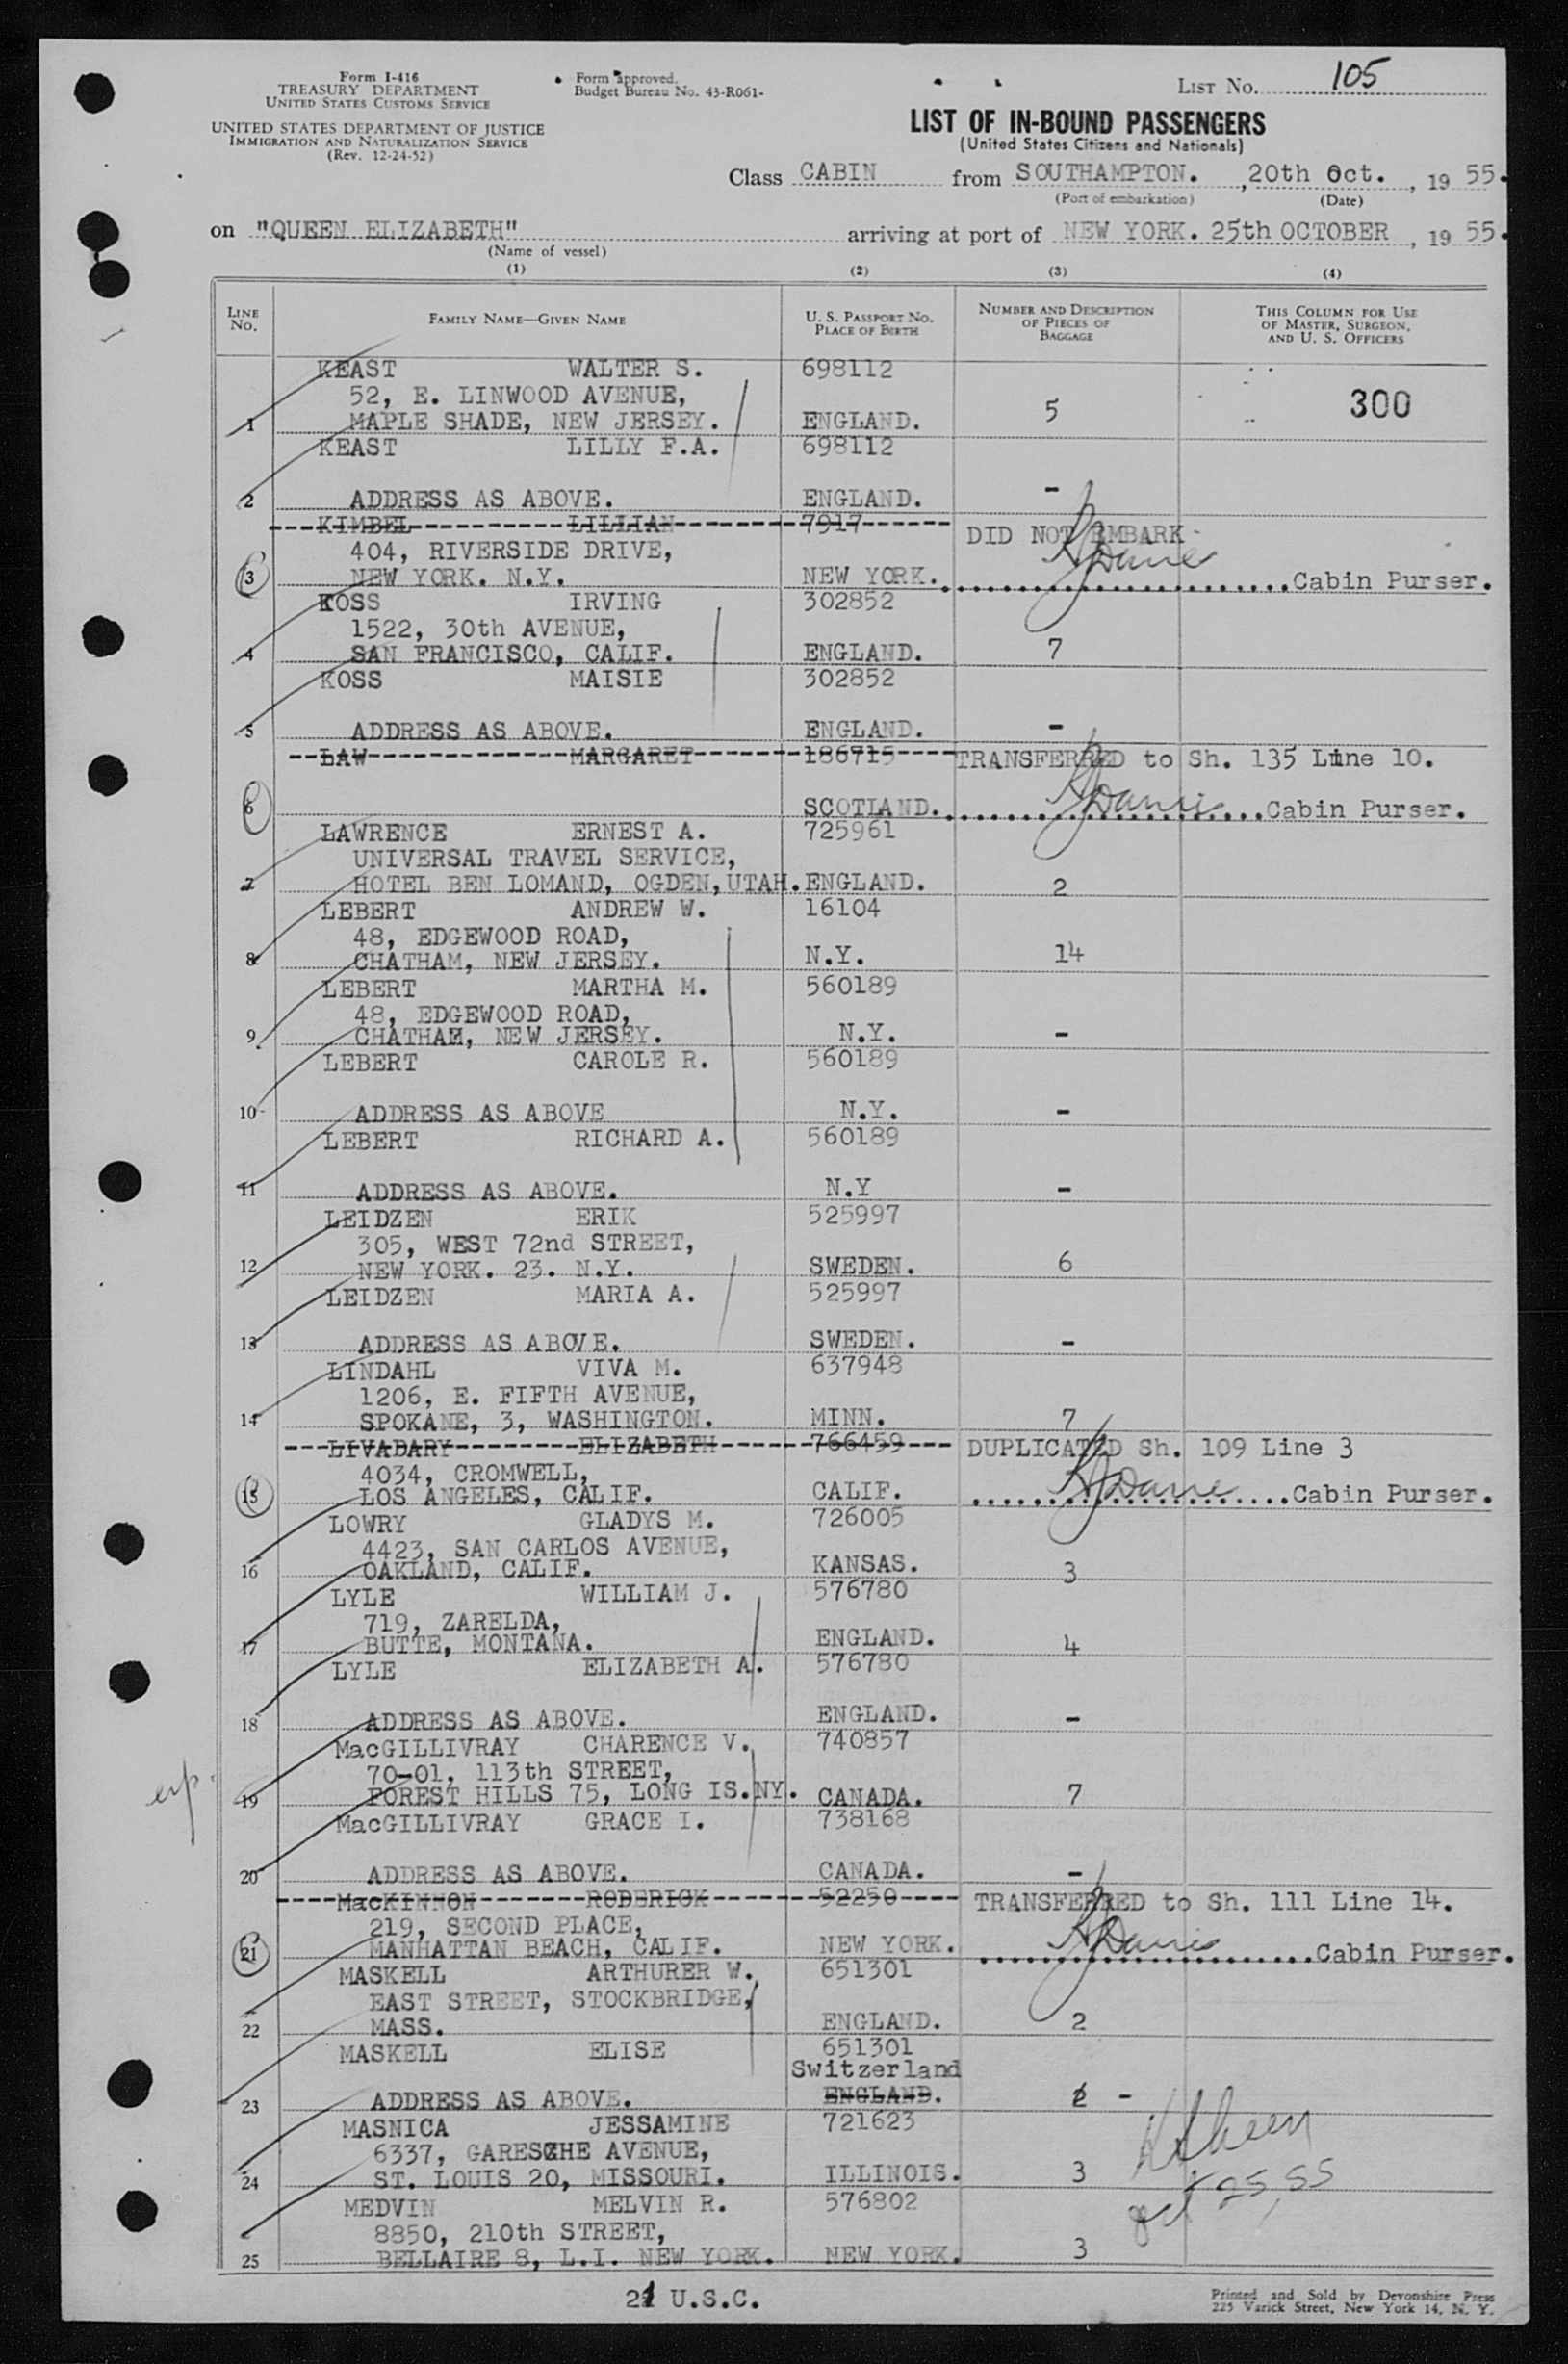 Form I-416
TREASURY DEPARTMENT
UNITED STATES CUSTOMS SERVICE
UNITED STATES DEPARTMENT OF JUSTICE
IMMIGRATION AND NATURALIZATION SERVICE
(Rev. 12-24-52)
Form approved.
Budget Bureau No. 43-R061-
LIST No. 105
LIST OF IN-BOUND PASSENGERS
(United States Citizens and Nationals)
Class CABIN from SOUTHAMPTON. , 20th Oct. , 19 55.
(Port of embarkation) (Date)
on "QUEEN ELIZABETH" arriving at port of NEW YORK. 25th OCTOBER , 19 55.
(Name of vessel)
(1) (2) (3) (4)
LINE No. FAMILY NAME—GIVEN NAME U. S. PASSPORT No. PLACE OF BIRTH NUMBER AND DESCRIPTION OF PIECES OF BAGGAGE THIS COLUMN FOR USE OF MASTER, SURGEON, AND U. S. OFFICERS
KEAST WALTER S. 698112
52, E. LINWOOD AVENUE, 5 300
1 MAPLE SHADE, NEW JERSEY. ENGLAND.
KEAST LILLY F.A. 698112
2 ADDRESS AS ABOVE. ENGLAND. -
KIMBEL LILLIAN 7917 DID NOT EMBARK
404, RIVERSIDE DRIVE,
3 NEW YORK. N.Y. NEW YORK. Cabin Purser.
KOSS IRVING 302852
1522, 30th AVENUE,
4 SAN FRANCISCO, CALIF. ENGLAND. 7
KOSS MAISIE 302852
5 ADDRESS AS ABOVE. ENGLAND. -
LAW MARGARET 186715 TRANSFERRED to Sh. 135 Line 10.
6 SCOTLAND. Cabin Purser.
LAWRENCE ERNEST A. 725961
UNIVERSAL TRAVEL SERVICE,
7 HOTEL BEN LOMAND, OGDEN, UTAH. ENGLAND. 2
LEBERT ANDREW W. 16104
48, EDGEWOOD ROAD,
8 CHATHAM, NEW JERSEY. N.Y. 14
LEBERT MARTHA M. 560189
48, EDGEWOOD ROAD,
9 CHATHAM, NEW JERSEY. N.Y. -
LEBERT CAROLE R. 560189
10 ADDRESS AS ABOVE N.Y. -
LEBERT RICHARD A. 560189
11 ADDRESS AS ABOVE. N.Y -
LEIDZEN ERIK 525997
305, WEST 72nd STREET,
12 NEW YORK. 23. N.Y. SWEDEN. 6
LEIDZEN MARIA A. 525997
13 ADDRESS AS ABOVE. SWEDEN. -
LINDAHL VIVA M. 637948
1206, E. FIFTH AVENUE,
14 SPOKANE, 3, WASHINGTON. MINN. 7
LIVADARY ELIZABETH 766459 DUPLICATED Sh. 109 Line 3
4034, CROMWELL,
15 LOS ANGELES, CALIF. CALIF. Cabin Purser.
LOWRY GLADYS M. 726005
4423, SAN CARLOS AVENUE,
16 OAKLAND, CALIF. KANSAS. 3
LYLE WILLIAM J. 576780
719, ZARELDA,
17 BUTTE, MONTANA. ENGLAND. 4
LYLE ELIZABETH A. 576780
18 ADDRESS AS ABOVE. ENGLAND. -
MacGILLIVRAY CHARENCE V. 740857
70-01, 113th STREET,
19 FOREST HILLS 75, LONG IS. NY. CANADA. 7
MacGILLIVRAY GRACE I. 738168
20 ADDRESS AS ABOVE. CANADA. -
MacKINNON RODERICK 52250 TRANSFERRED to Sh. 111 Line 14.
219, SECOND PLACE,
21 MANHATTAN BEACH, CALIF. NEW YORK. Cabin Purser.
MASKELL ARTHURER W. 651301
EAST STREET, STOCKBRIDGE,
22 MASS. ENGLAND. 2
MASKELL ELISE 651301
Switzerland
23 ADDRESS AS ABOVE. ENGLAND. 2 -
MASNICA JESSAMINE 721623
6337, GARESCHE AVENUE,
24 ST. LOUIS 20, MISSOURI. ILLINOIS. 3
Oct 25, 55
MEDVIN MELVIN R. 576802
8850, 210th STREET,
25 BELLAIRE 8, L.I. NEW YORK. NEW YORK. 3
21 U.S.C.
Printed and Sold by Devonshire Press
225 Varick Street, New York 14, N. Y.